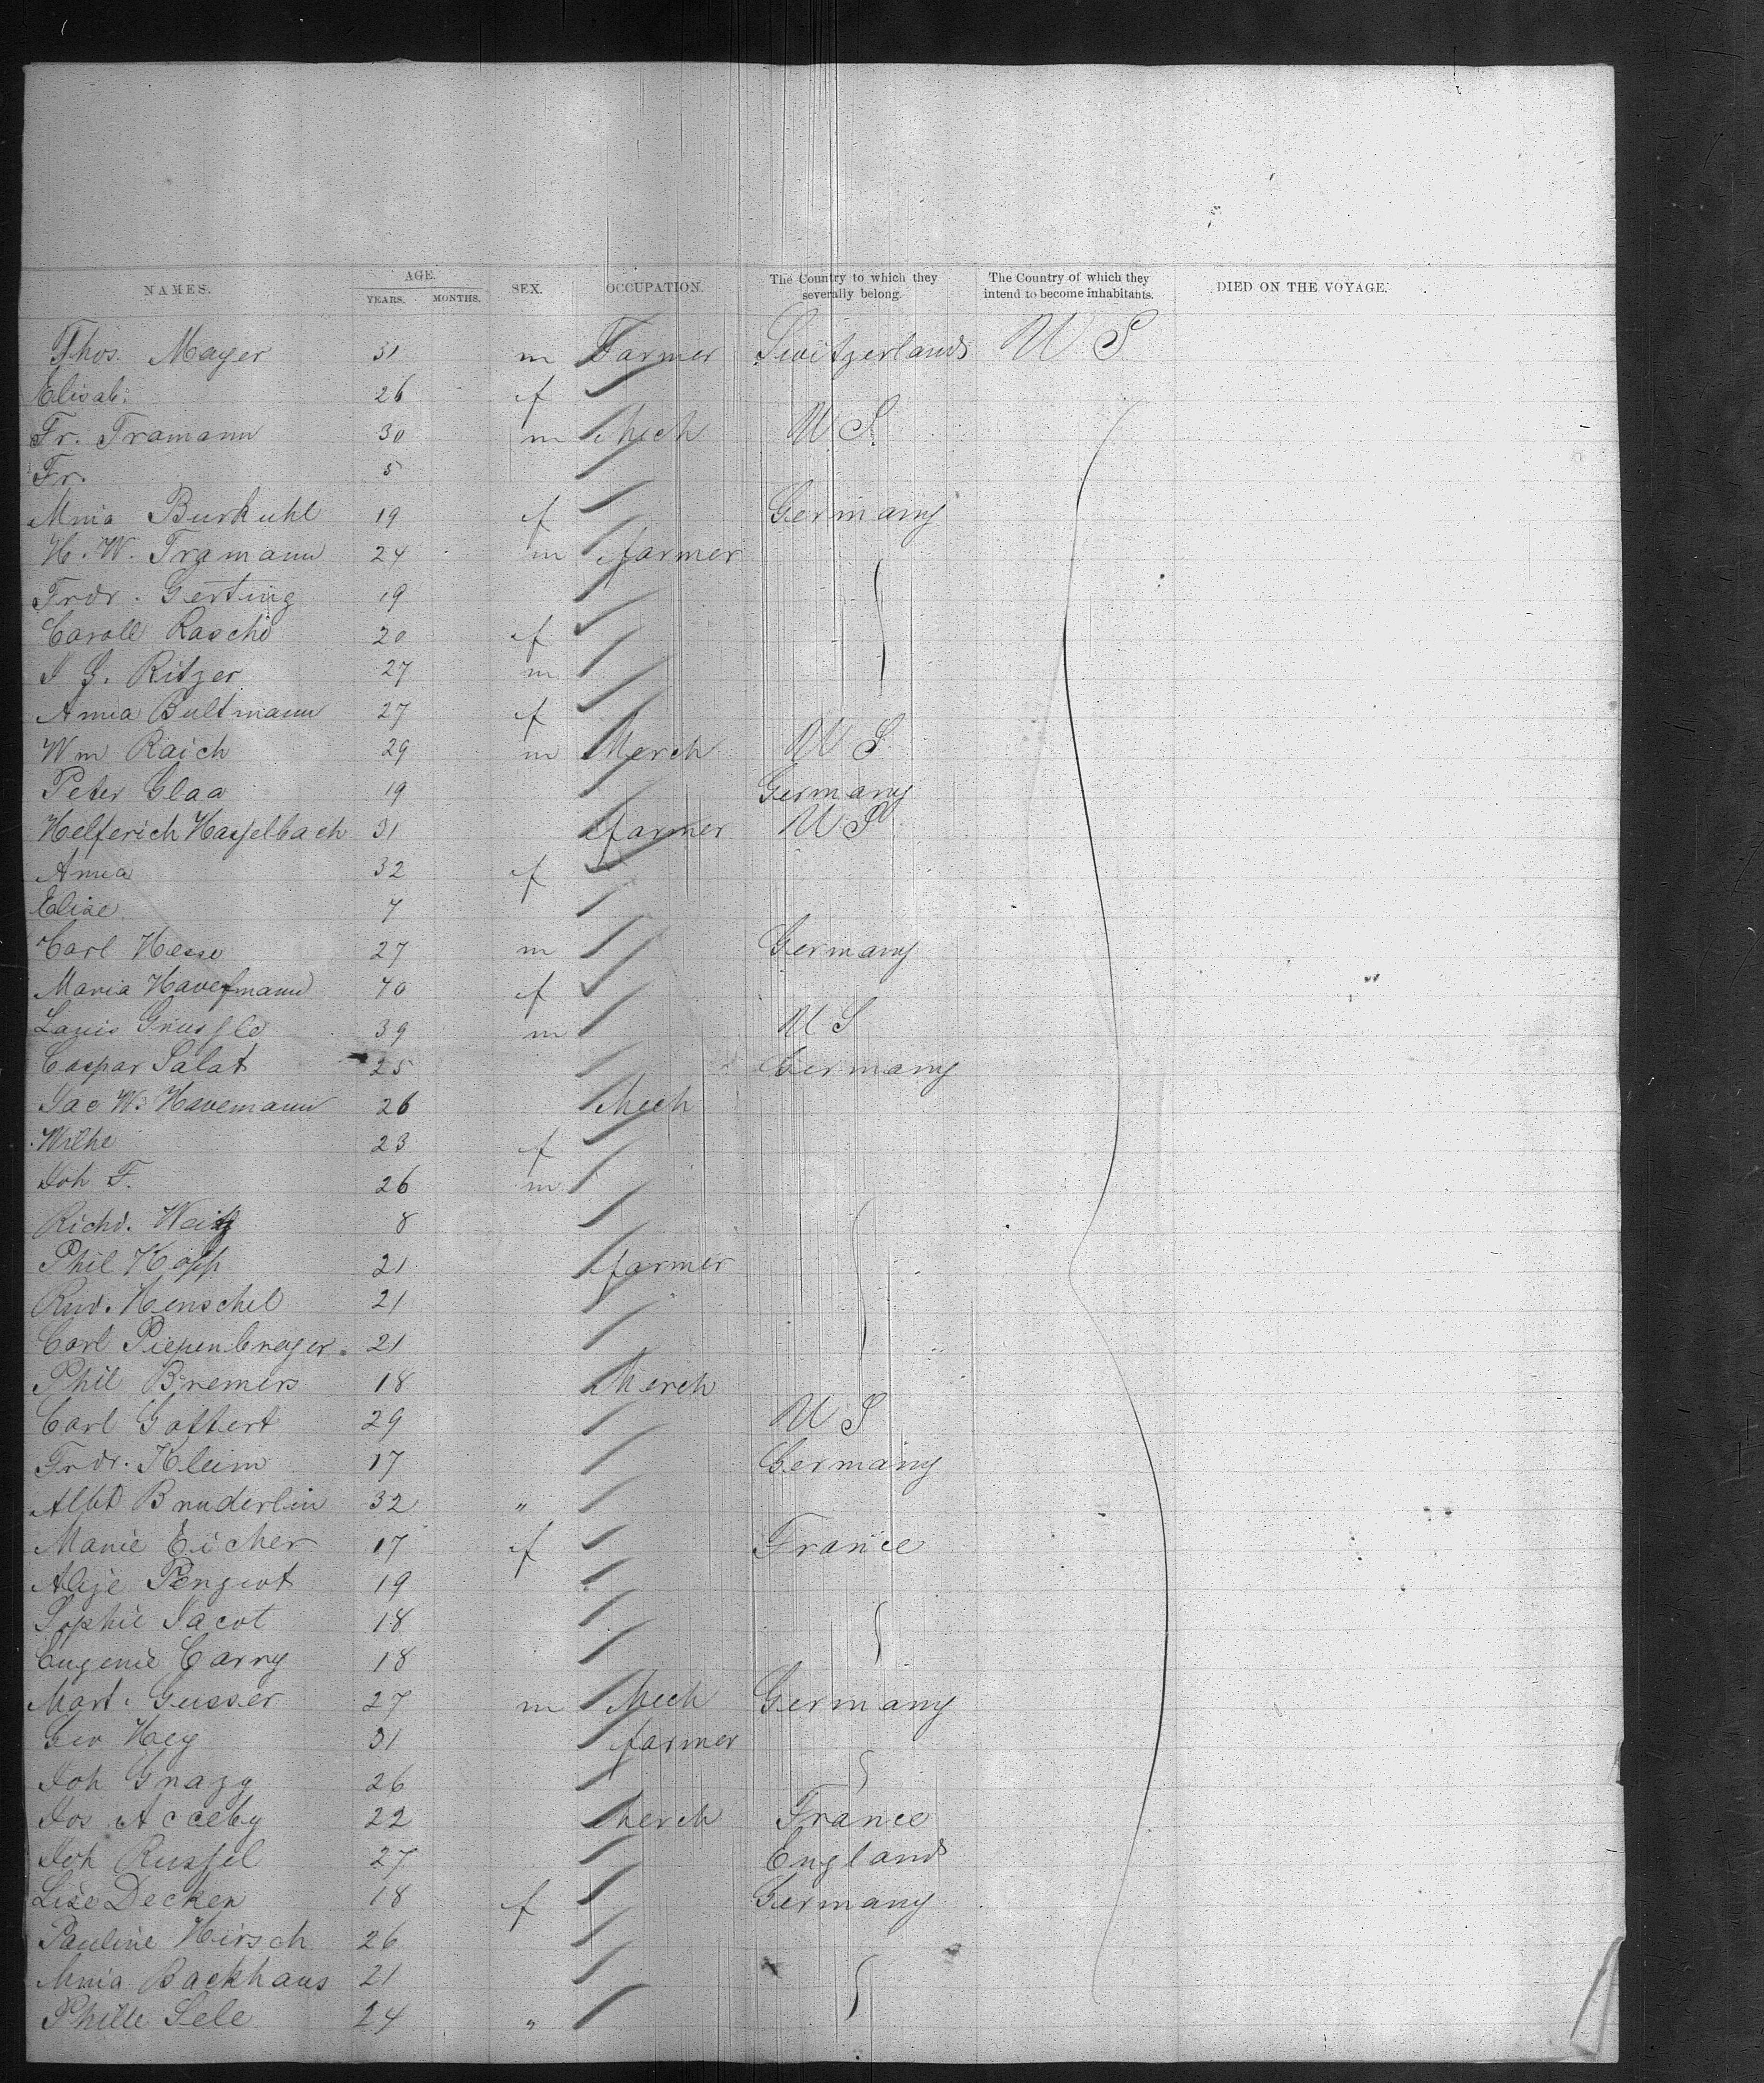 NAMES. AGE. YEARS. MONTHS. SEX. OCCUPATION. The Country to which they severally belong. The Country of which they intend to become inhabitants. DIED ON THE VOYAGE.
Thos. Mayer 31 m Farmer Switzerland U S
Elisab: 26 f
Fr. Tramann 30 m Mech U S
Fr. 5
Mnia Burkuhl 19 f Germany
H. W. Tramann 24 m farmer
Frdr. Gerting 19
Caroll Raschi 20 f
I G. Ritzer 27 m
Anna Bultmann 27 f
Wm Raich 29 m Merch U S
Peter Glaa 19 Germany
Helferich Hasselbach 31 farmer U S
Anna 32 f
Elise 7
Carl Hesse 27 m Germany
Maria Havesmann 40 f
Louis 39 m U S
Caspar Salat 25 Germany
Jac W. Havemann 26 Mech
Wilhe 23 f
Joh F. 26 m
Richd. Weitz 8
Phil Kopp 21 farmer
Rud. Henschel 21
Carl Piepenbrager 21
Phil Bremers 18 Merch
Carl Gottert 29 U S
Frdr. Kleim 17 Germany
Albt Bruderlin 32 "
Marie Eicher 17 f France
Pengeot 19
Sophie Jacot 18
Eugenie Carny 18
Mart. Gusser 27 m Mech Germany
Geo Hey 31 farmer
Joh Gnagy 26
Jos 22 Merch France
Joh Russel 27 England
Lise Decken 18 f Germany
Pauline Hirsch 26
Mnia Backhaus 21
Phille Sele 24 "